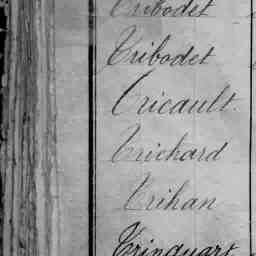 Tribodet
Tribodet
Tricault
Trichard
Trihan
Trinquart